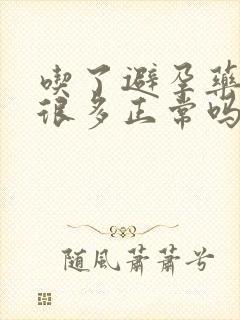 喫了避孕藥
很多正常嗎
随風蕭蕭兮